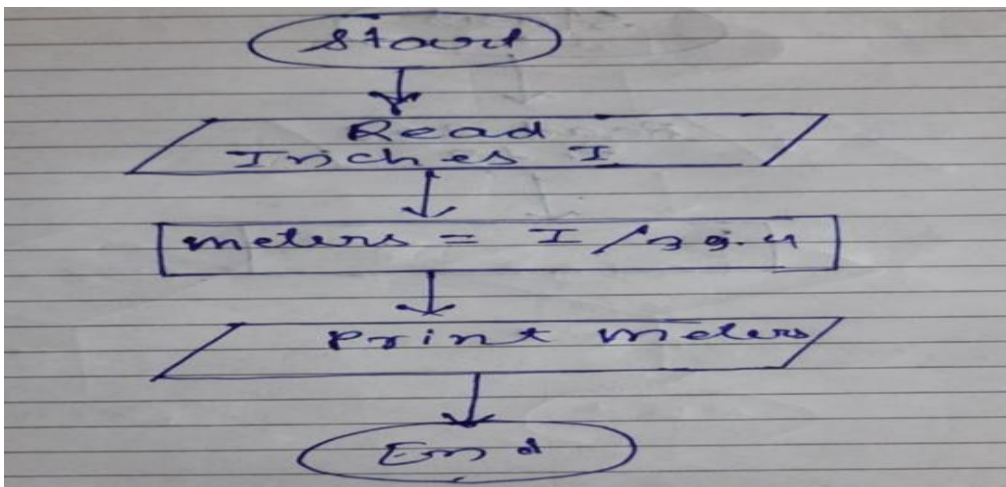 Start
Read
Inches I
meters = I / 39.4
Print meters
End